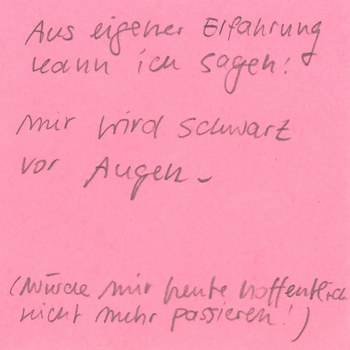 Aus eigener Erfahrung
kann ich sagen:
mir wird schwarz
vor Augen –
(Würde mir heute hoffentlich
nicht mehr passieren!)